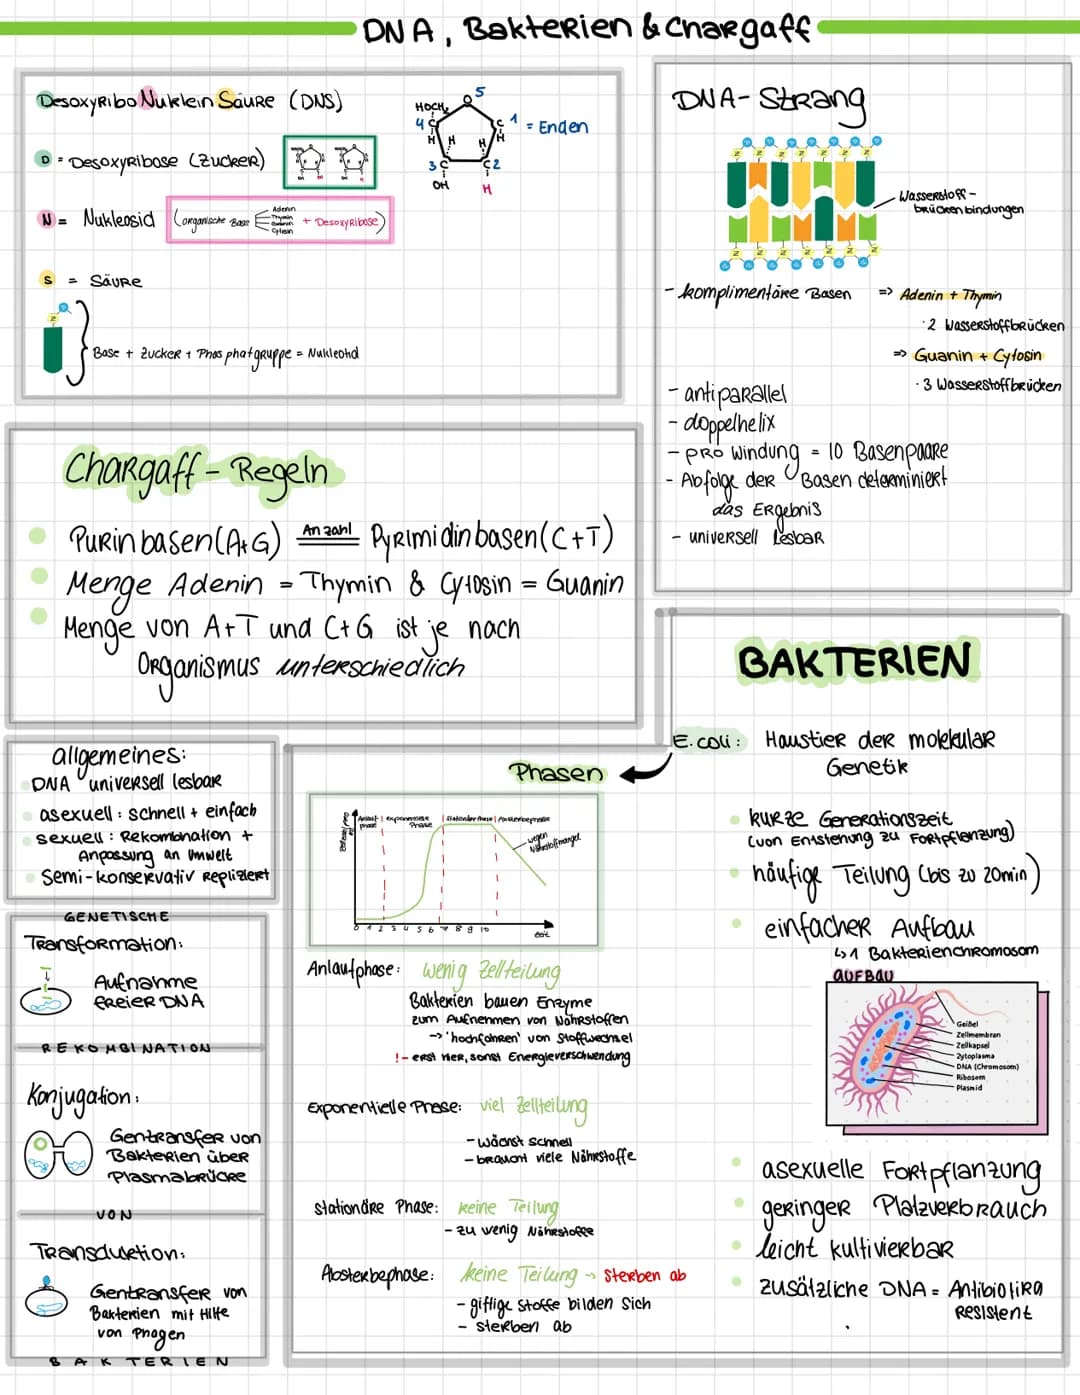 DNA, Bakterien & Chargaff
DesoxyRibo Nuklein Säure (DNS)
D = Desoxyribose (Zucker)
N = Nukleosid (organische Base
Adenin
Thymin
Guanin
Cytosin
+ Desoxyribose)
S = Säure
Base + Zucker + Phosphatgruppe = Nukleotid
HOCH₂
O
5
4 C
C 1
= Enden
H
H
H
H
3 C
C 2
OH
H
DNA-Strang
Wasserstoff-
brückenbindungen
- komplimentäre Basen => Adenin + Thymin
· 2 Wasserstoffbrücken
=> Guanin + Cytosin
· 3 Wasserstoffbrücken
- antiparallel
- doppelhelix
- pro Windung = 10 Basenpaare
- Abfolge der Basen determiniert
das Ergebnis
- universell lesbar
Chargaff-Regeln
Purinbasen(A+G) Anzahl Pyrimidinbasen(C+T)
Menge Adenin = Thymin & Cytosin = Guanin
Menge von A+T und C+G ist je nach
Organismus unterschiedlich
BAKTERIEN
E.coli: Haustier der molekular
Genetik
kurze Generationszeit
(von Entstehung zu Fortpflanzung)
häufige Teilung (bis zu 20min)
einfacher Aufbau
↳ 1 Bakterienchromosom
AUFBAU
Geißel
Zellmembran
Zellkapsel
Zytoplasma
DNA (Chromosom)
Ribosom
Plasmid
asexuelle Fortpflanzung
geringer Platzverbrauch
leicht kultivierbar
zusätzliche DNA = Antibiotika
Resistent
allgemeines:
DNA universell lesbar
asexuell: schnell + einfach
sexuell: Rekombination +
Anpassung an Umwelt
Semi-konservativ repliziert
GENETISCHE
Transformation:
Aufnahme
freier DNA
REKOMBINATION
Konjugation:
Gentransfer von
Bakterien über
Plasmabrücke
VON
Transduktion:
Gentransfer von
Bakterien mit Hilfe
von Phagen
BAKTERIEN
Phasen
Anlauf | exponentielle | stationäre Phase | Absterbephase
phase Phase
wegen
Nährstoffmangel
0 1 2 3 4 5 6 7 8 9 10
Zeit
Anlaufphase: wenig Zellteilung
Bakterien bauen Enzyme
zum Aufnehmen von Nährstoffen
→ 'hochfahren' von Stoffwechsel
!- erst hier, sonst Energieverschwendung
Exponentielle Phase: viel Zellteilung
- wächst schnell
- braucht viele Nährstoffe
stationäre Phase: keine Teilung
- zu wenig Nährstoffe
Absterbephase: keine Teilung → sterben ab
- giftige Stoffe bilden sich
- sterben ab